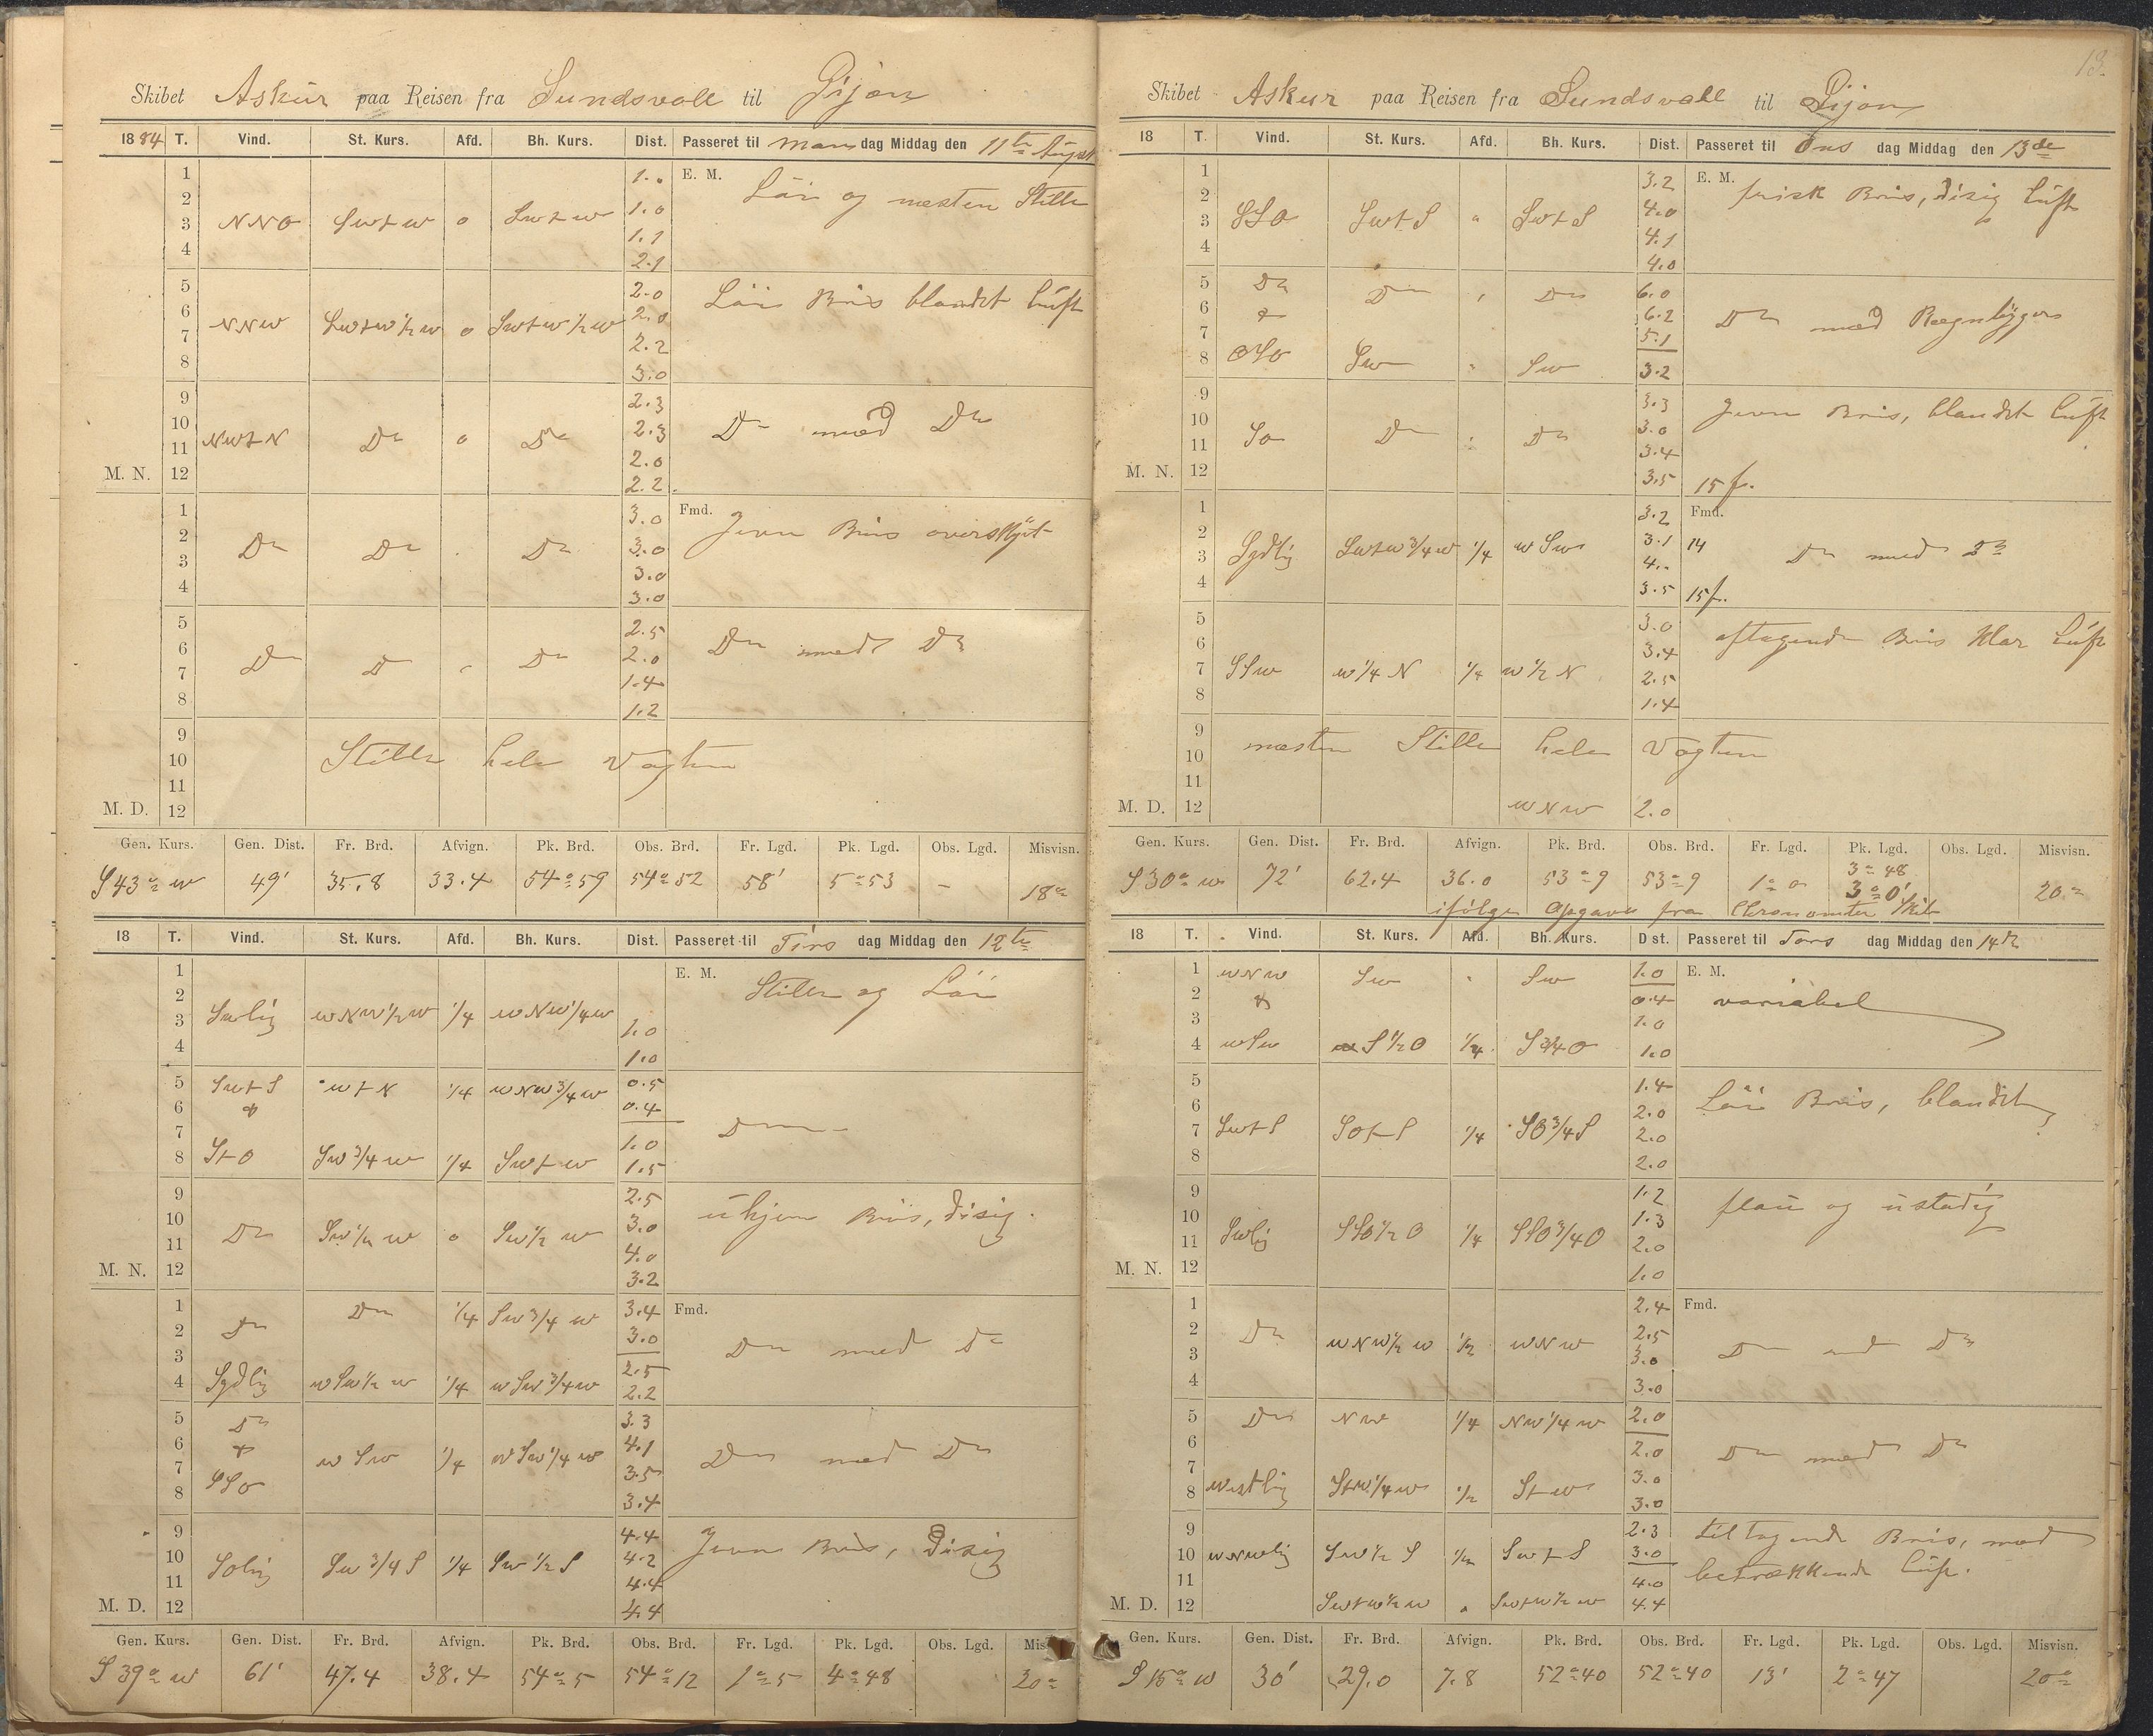 Skibet Askur paa Reisen fra Sundsvall til Gijon
1884 T. Vind. St. Kurs. Afd. Bh. Kurs. Dist. Passeret til Man dag Middag den 11te August
1 1.0 E. M. Löi og næsten Stille
2 1.0
3 NNO SwtW 0 SwtW 1.1
4 2.1
5 2.0 Löi Bris blandet Luft
6 2.0
7 NNW SwtW 1/2 W 0 SwtW 1/2 W 2.2
8 3.0
9 2.3
10 2.3 Do med Do
11 NWtN Do 0 Do 2.0
M. N. 12 2.2
1 3.0 Fmd. Jevn Bris overskyet
2 Do Do Do 3.0
3 3.0
4 3.0
5 2.5 Do med Do
6 2.0
7 Do Do Do 1.4
8 1.2
9
10 Stille hele Vagten
11
M. D. 12
Gen. Kurs. Gen. Dist. Fr. Brd. Afvign. Pk. Brd. Obs. Brd. Fr. Lgd. Pk. Lgd. Obs. Lgd. Misvisn.
S 43° W 49' 35.8 33.4 54° 59 54° 52 58' 5° 53 - 18°
18 T. Vind. St. Kurs. Afd. Bh. Kurs. Dist. Passeret til Tirs dag Middag den 12te
1 E. M. Stille og Löi
2
3 Swlig WNW 1/2 W 1/4 WNW 1/4 W 1.0
4 1.0
5 SwtS WtN 1/4 WNW 3/4 W 0.5
6 & 0.4
7 1.0 Do
8 StO Sw 3/4 W 1/4 SwtW 1.5
9 2.5 ujevn Bris, disig.
10 3.0
11 Do Sw 1/2 W 0 Sw 1/2 W 4.0
M. N. 12 3.2
1 Do 1/4 Sw 3/4 W 3.4 Fmd.
2 Do 3.0 Do med Do
3 2.5
4 Sydlig WSw 1/2 W 1/4 WSw 3/4 W 2.2
5 Do 3.3
6 & WSw 1/4 WSw 1/4 W 4.1 Do med Do
7 SSO 3.5
8 3.4
9 4.4 Jevn Bris, disig
10 4.2
11 Solig Sw 3/4 S 1/4 Sw 1/2 S 4.4
M. D. 12 4.4
Gen. Kurs. Gen. Dist. Fr. Brd. Afvign. Pk. Brd. Obs. Brd. Fr. Lgd. Pk. Lgd. Obs. Lgd. Mis
S 39° W 61' 47.4 38.4 54° 5 54° 12 1° 5 4° 48 20°
13.
Skibet Askur paa Reisen fra Sundsvall til Gijon
18 T. Vind. St. Kurs. Afd. Bh. Kurs. Dist. Passeret til Ons dag Middag den 13de
1 3.2 E. M. frisk Bris, disig Luft
2 4.0
3 SSO SwtS SwtS 4.1
4 4.0
5 Do Do Do 6.0
6 & 6.2 Do med Regnbyger
7 5.1
8 OSO Sw Sw 3.2
9 3.3 Jevn Bris, blandet Luft
10 3.0
11 SO Do Do 3.4
M. N. 12 3.5 15 f.
1 3.2 Fmd.
2 3.1 14 Do med Do
3 Sydlig SwtW 3/4 W 1/4 WSw 4.-
4 3.5 15 f.
5 3.0 aftagende Bris klar Luft
6 3.4
7 SSW W 1/4 N 1/4 W 1/2 N 2.5
8 1.4
9 næsten Stille hele Vagten
10
11
M. D. 12 WNW 2.0
Gen. Kurs. Gen. Dist. Fr. Brd. Afvign. Pk. Brd. Obs. Brd. Fr. Lgd. Pk. Lgd. Obs. Lgd. Misvisn.
3° 48
S 30° W 72' 62.4 36.0 53° 9 53° 9 1° 0 3° 0' 20°
ifölge Opgave fra Chronometer Skib
18 T. Vind. St. Kurs. Afd. Bh. Kurs. Dist. Passeret til Tors dag Middag den 14de
1 WNW Sw Sw 1.0 E. M.
2 & 0.4 variabel
3 1.0
4 WSw S 1/2 O 1/4 S 3/4 O 1.0
5 1.4 Löi Bris, blandet
6 2.0
7 SwtS SOtS 1/4 SO 3/4 S 2.0
8 2.0
9 1.2 flau og ustadig
10 1.3
11 Swlig SSO 1/2 O 1/4 SSO 3/4 O 2.0
M. N. 12 1.0
1 2.4 Fmd.
2 Do WNW 1/2 W 1/2 WNW 2.5
3 3.0 Do med Do
4 3.0
5 Do NW 1/4 NW 1/4 W 2.0
6 2.0 Do med Do
7 3.0
8 Westlig StW 1/4 W 1/2 StW 3.0
9 2.3 tiltagende Bris, med
10 WNWlig Sw 1/2 S 1/2 SwtS 3.0
11 4.0 betrækkende Luft.
M. D. 12 SwtW 1/2 W SwtW 1/2 W 4.4
Gen. Kurs. Gen. Dist. Fr. Brd. Afvign. Pk. Brd. Obs. Brd. Fr. Lgd. Pk. Lgd. Obs. Lgd. Misvisn.
S 15° W 30' 29.0 7.8 52° 40 52° 40 13' 2° 47 20°